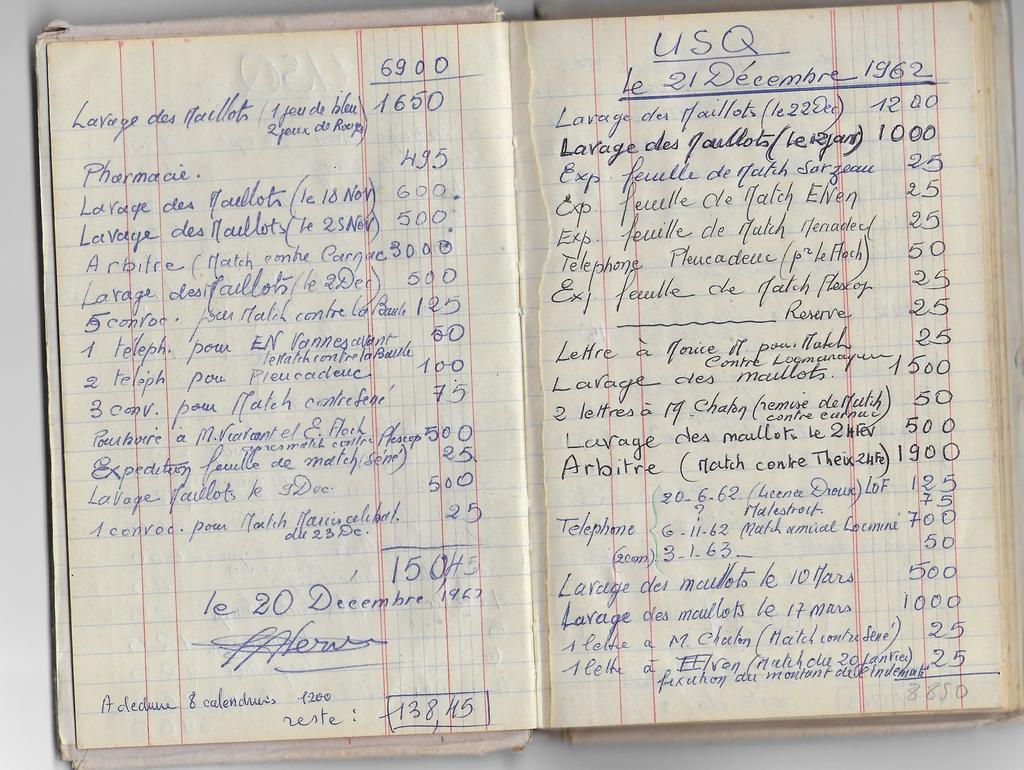 6900
Lavage des Maillots (1 jeu de bleu 1650
2 jeux de Rouge)
Pharmacie. 495
Lavage des Maillots (le 18 Nov) 600
Lavage des Maillots (le 25 Nov) 500
Arbitre (Match contre Carnac 3000
Lavage des Maillots (le 2 Dec) 500
5 convoc. pour Match contre la Baule 125
1 téleph. pour EN Vannes avant 50
le Match contre la Baule
2 teléph pour Pleucadeuc 100
3 conv. pour Match contre Séné 75
Pourboire à M. et E. Floch 500
après match contre Plescop
Expedition feuille de match (Séné) 25
Lavage Maillots le 9 Dec. 500
1 convoc. pour Match Mariés célibat. 25
du 23 Dc.
150,45
le 20 Décembre 1962
A deduire 8 calendriers 1200
reste : 138,45
USQ
le 21 Décembre 1962
Lavage des Maillots (le 22 Dec) 1200
Lavage des Maillots (le 12 janv) 1000
Exp. feuille de Match Sarzeau 25
Exp. feuille de Match Elven 25
Exp. feuille de Match Meriadec 25
Telephone Pleucadeuc (pr Le Floch) 50
Exp feuille de Match Plescop 25
Reserve 25
Lettre à Morice M. pour Match 25
Contre Locmariaquer
Lavage des maillots. 1500
2 lettres à M. Chaton (remise de Match 50
contre carnac)
Lavage des maillots le 24 Fev 500
Arbitre (Match contre Theix 24 Fe) 1900
Telephone 20-6-62 (Licence Droux) LOF 125
? Malestroit 75
6-11-62 Match amical Locminé 700
(2com) 3-1-63 50
Lavage des maillots le 10 Mars 500
Lavage des maillots le 17 mars 1000
1 lettre à M. Chaton (Match contre Séné) 25
1 lettre à Elven (Match du 20 Janvier) 25
fixation du montant de l'indemnité
8850